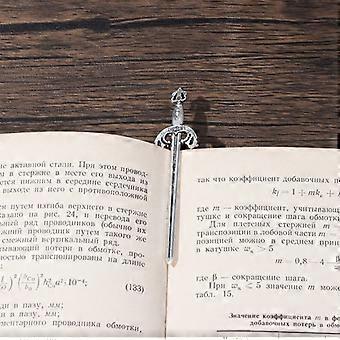 не активной стали. При этом провод-
м в стержне в месте его выхода из
ется нижним в середине сердечника
выходе из него с противоположной
путем изгиба верхнего в стержне
казано на рис. 24, и перевода его
ный ряд проводников (обычно их
жний проводник путем такого же
смежный вертикальный ряд.
итывающий потери в обмотке, про-
ностью транспонированы на длине
(133)
ди в пазу, мм;
и в пазу, мм;
ментарного проводника обмотки,
так что коэффициент добавочных п
kf = 1 + mk
где m — коэффициент, учитывающ
тушке и сокращение шага обмот
Для плетеных стержней m
транспозиции в лобовой части m —
позицией можно в среднем прин
в катушке > 5
m = 0,8 — 4
где β — сокращение шага.
При ⩽ 5 значение m может
табл. 15.
Значение коэффициента m в фо
добавочных потерь в обмот